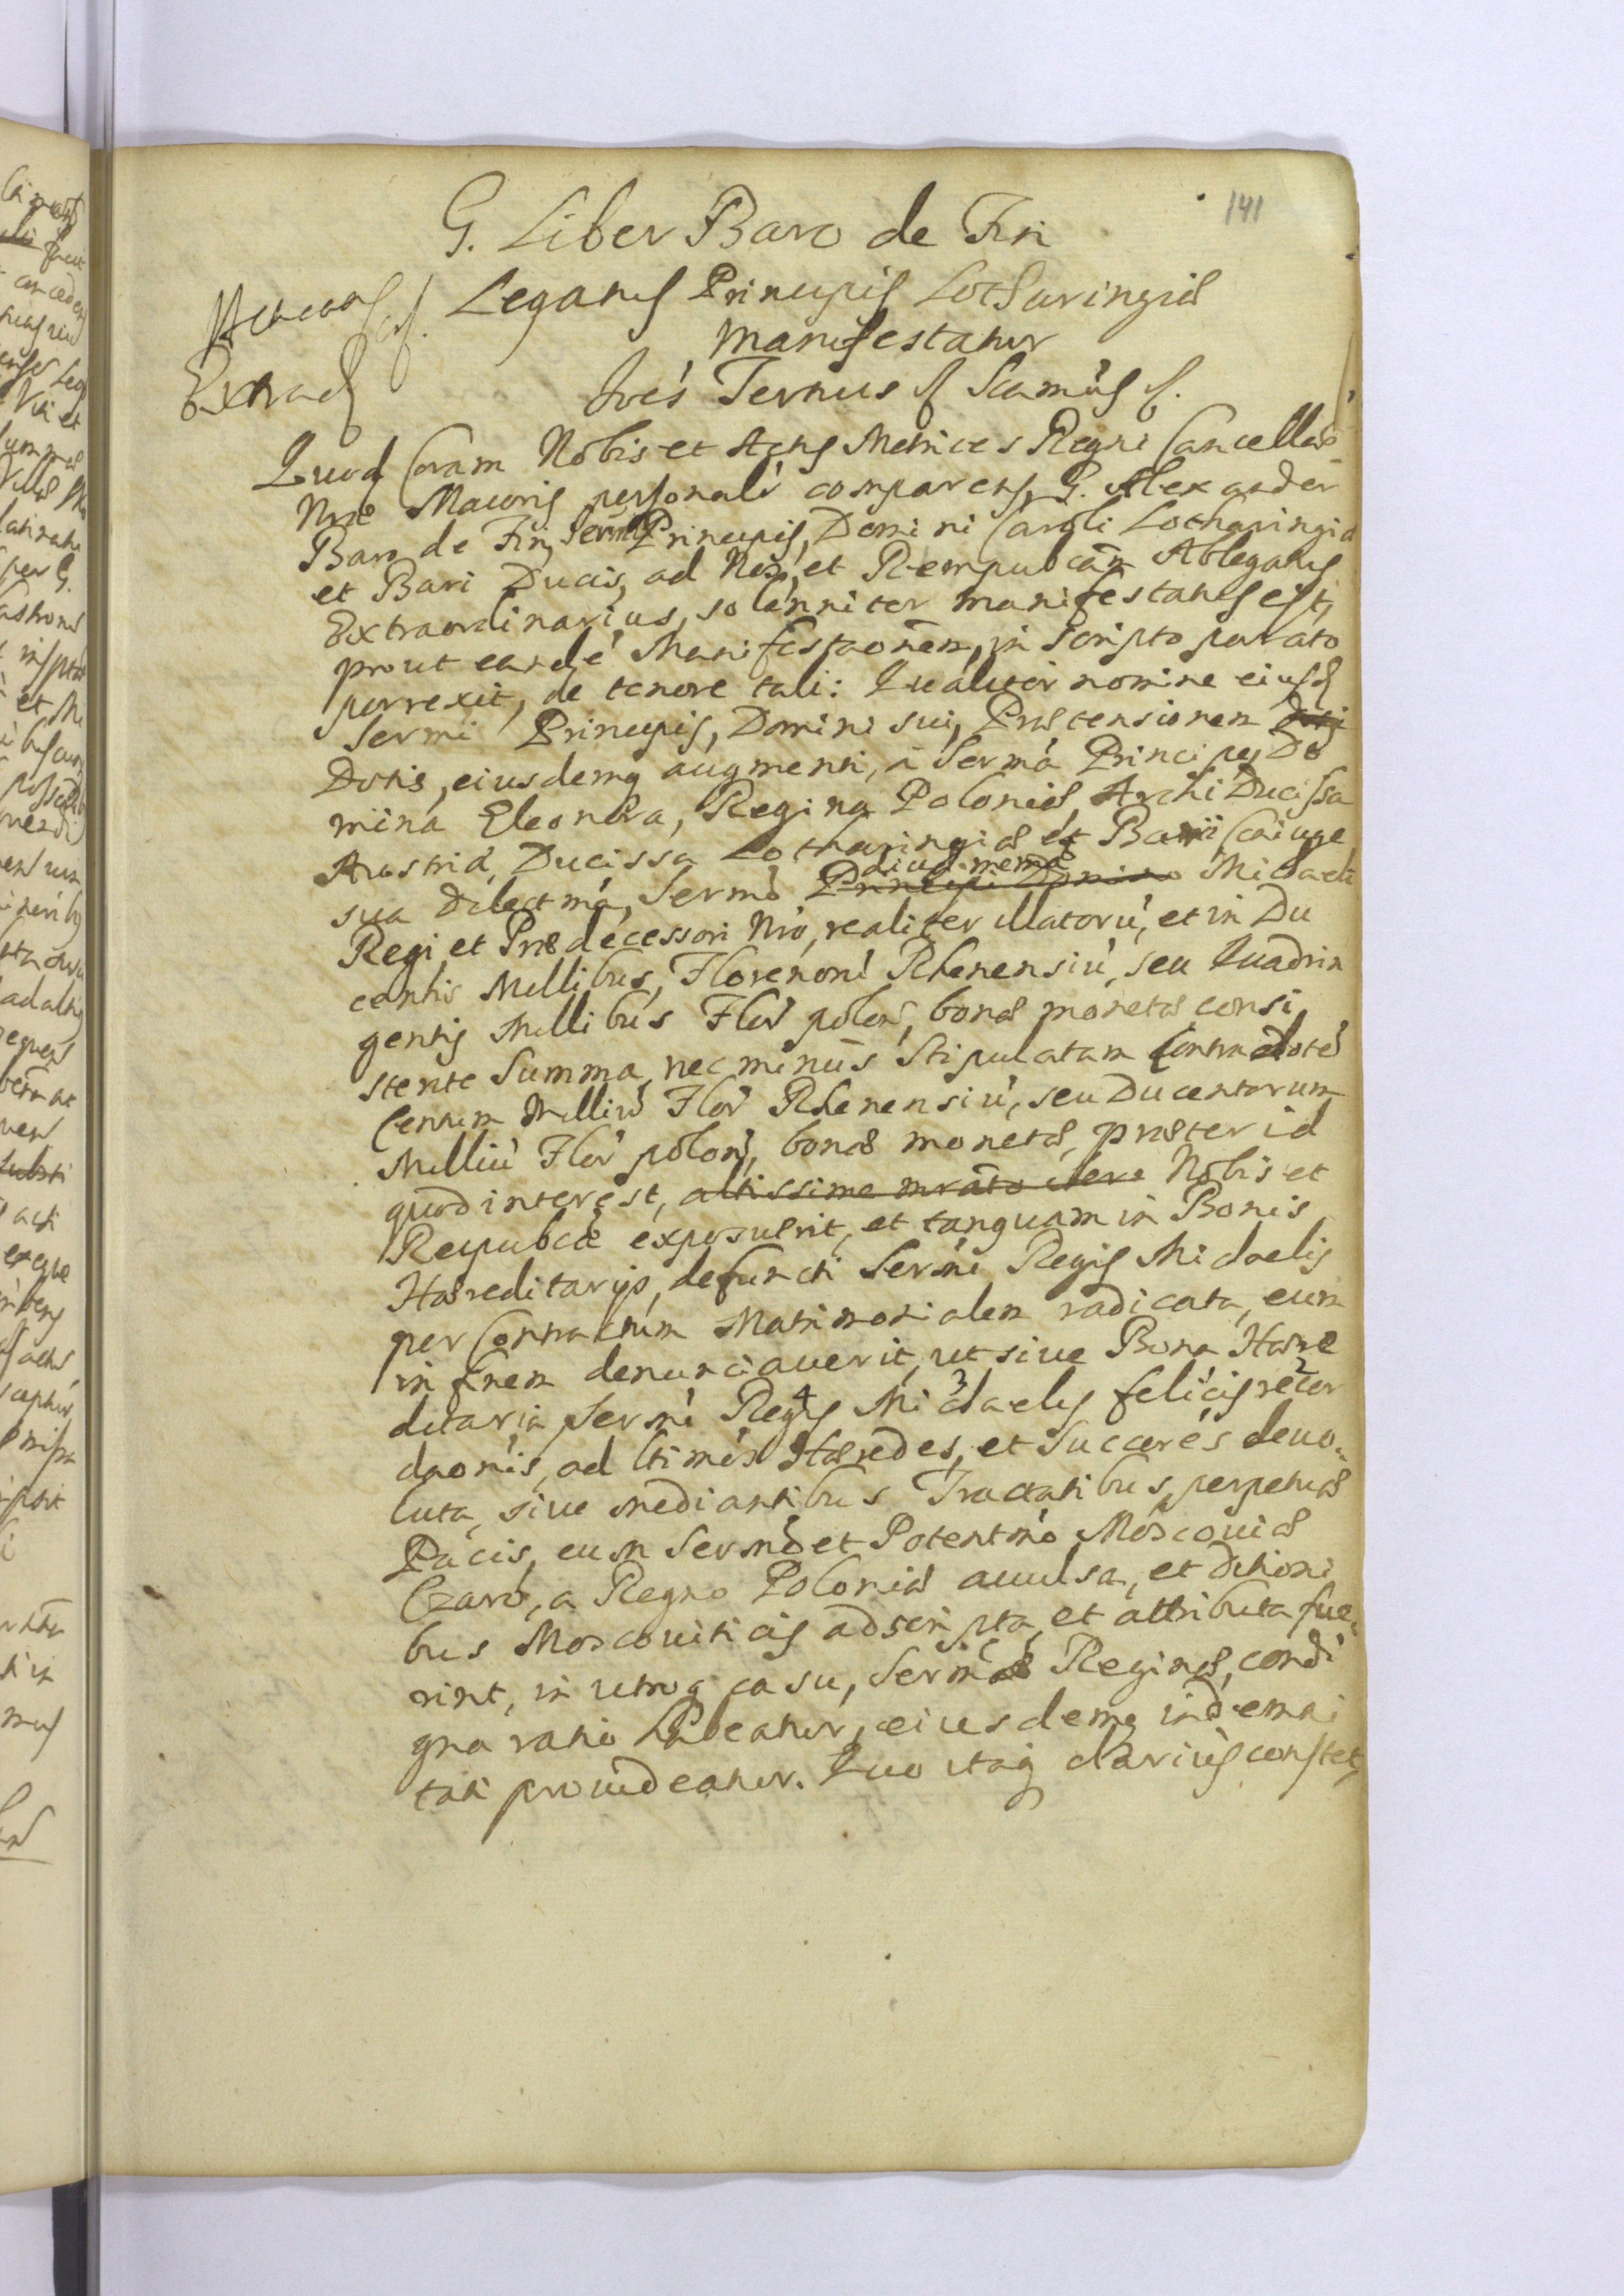 141
G. Liber Baro de Fin
Legatus Principis Lotharingiæ
manifestatur
Extrad
Joês Tertius Scimus
Quod Coram Nobis et Actis Metrices Regni Cancellaæ
Nræ Maioris personalr comparens G. Alexander
Baro de Fin, Sermi Principis, Domini Caroli Lotharingiæ
et Bari Ducis, ad Nos, et Rempubcam Ablegatus
Extraordinarius, solenniter manifestatus est,
prout eandẽ Manifestaonem, in scripto parato
porrexit, de tenore tali: Qualiter nomine eiusd
Sermi Principis, Domini sui, Prætensionem Doti
Dotis, eiusdemq augmenti, a Serma Principe, Do
mina Eleonora, Regina Poloniæ, Archi Ducissa
Austriæ, Ducissa Lotharingiæ et Barii Coniuge
sua dilectma, Sermo Principi Domino diuæ memæ Michaeli
Regi et Prædecessori Nro, realiter illatorũ, et in Du
centis Millibus, Florenorũ Rhenensiũ, seu Quadrin
gentis Millibus Flor polon, bonæ monetæ consi
stente Summa, nec minus Stipulatam Contradotẽ
Centum Milliũ Flor Rhenensiũ, seu Ducentorum
Milliũ Flor polon, bonæ monetæ, præter id
quod interest, altissime Nobis et
Reipubcæ exposuerit, et tanquam in Bonis
Hæreditarijs, defuncti Sermi Regis Michaelis
per Contractum Matrimonialem radicata, eum
in finem denunciauerit, ut siue Bona Hære
ditaria Sermi Regis 4 Michaelis 3 felicis recor 2
daonis, ad ltimos Hæredes, et Succores deuo-
luta, siue mediantibus Tractatibus, perpetuæ
Pacis, cum Sermo et Potentmo Moscouiæ
Czaro, a Regno Poloniæ auulsa, et Ditioni
bus Moscouiticis adscripta, et attributa fue
rint, in utroq casu, Sermæ Reginæ, condi
gna ratio habeatur, eiusdemq indemni
tati prouideatur. Quo itaq clarius constet,